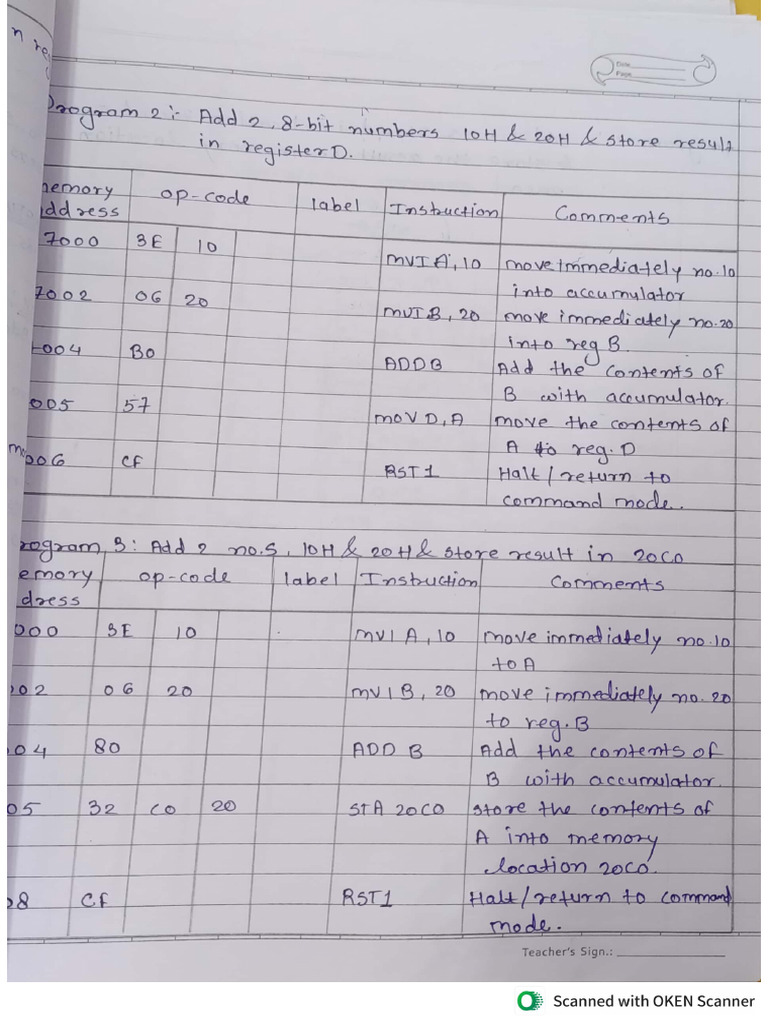 n re
Date
Page
Program 2:- Add 2, 8-bit numbers 10H & 20H & store result
in register D.
memory address op-code label Instruction Comments
7000 3E 10 MVI A, 10 move immediately no. 10
into accumulator
7002 06 20 MVI B, 20 move immediately no. 20
into reg B.
004 B0 ADD B Add the contents of
B with accumulator.
005 57 MOV D, A move the contents of
A to reg. D
006 CF RST 1 Halt / return to
command mode.
rogram 3: Add 2 no.s, 10H & 20H & store result in 20C0
emory dress op-code label Instruction Comments
000 3E 10 MVI A, 10 move immediately no. 10
to A
02 06 20 MVI B, 20 move immediately no. 20
to reg. B
04 80 ADD B Add the contents of
B with accumulator.
05 32 C0 20 STA 20C0 store the contents of
A into memory
location 20C0.
08 CF RST1 Halt / return to command
mode.
Teacher's Sign.:
Scanned with OKEN Scanner